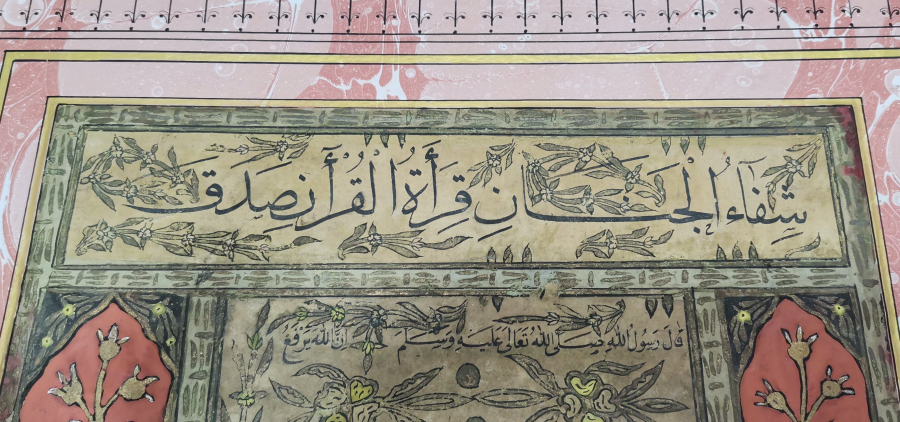 شِفَاءُ الْجَنَانِ قِرَأَةُ الْقُرْآنِ صَدَقَ
قَالَ رَسُولُ اللهِ صَلَّى اللهُ تَعَالَى عَلَيْهِ وَسَلَّمَ اِنَّ اللهَ يَرْفَعُ